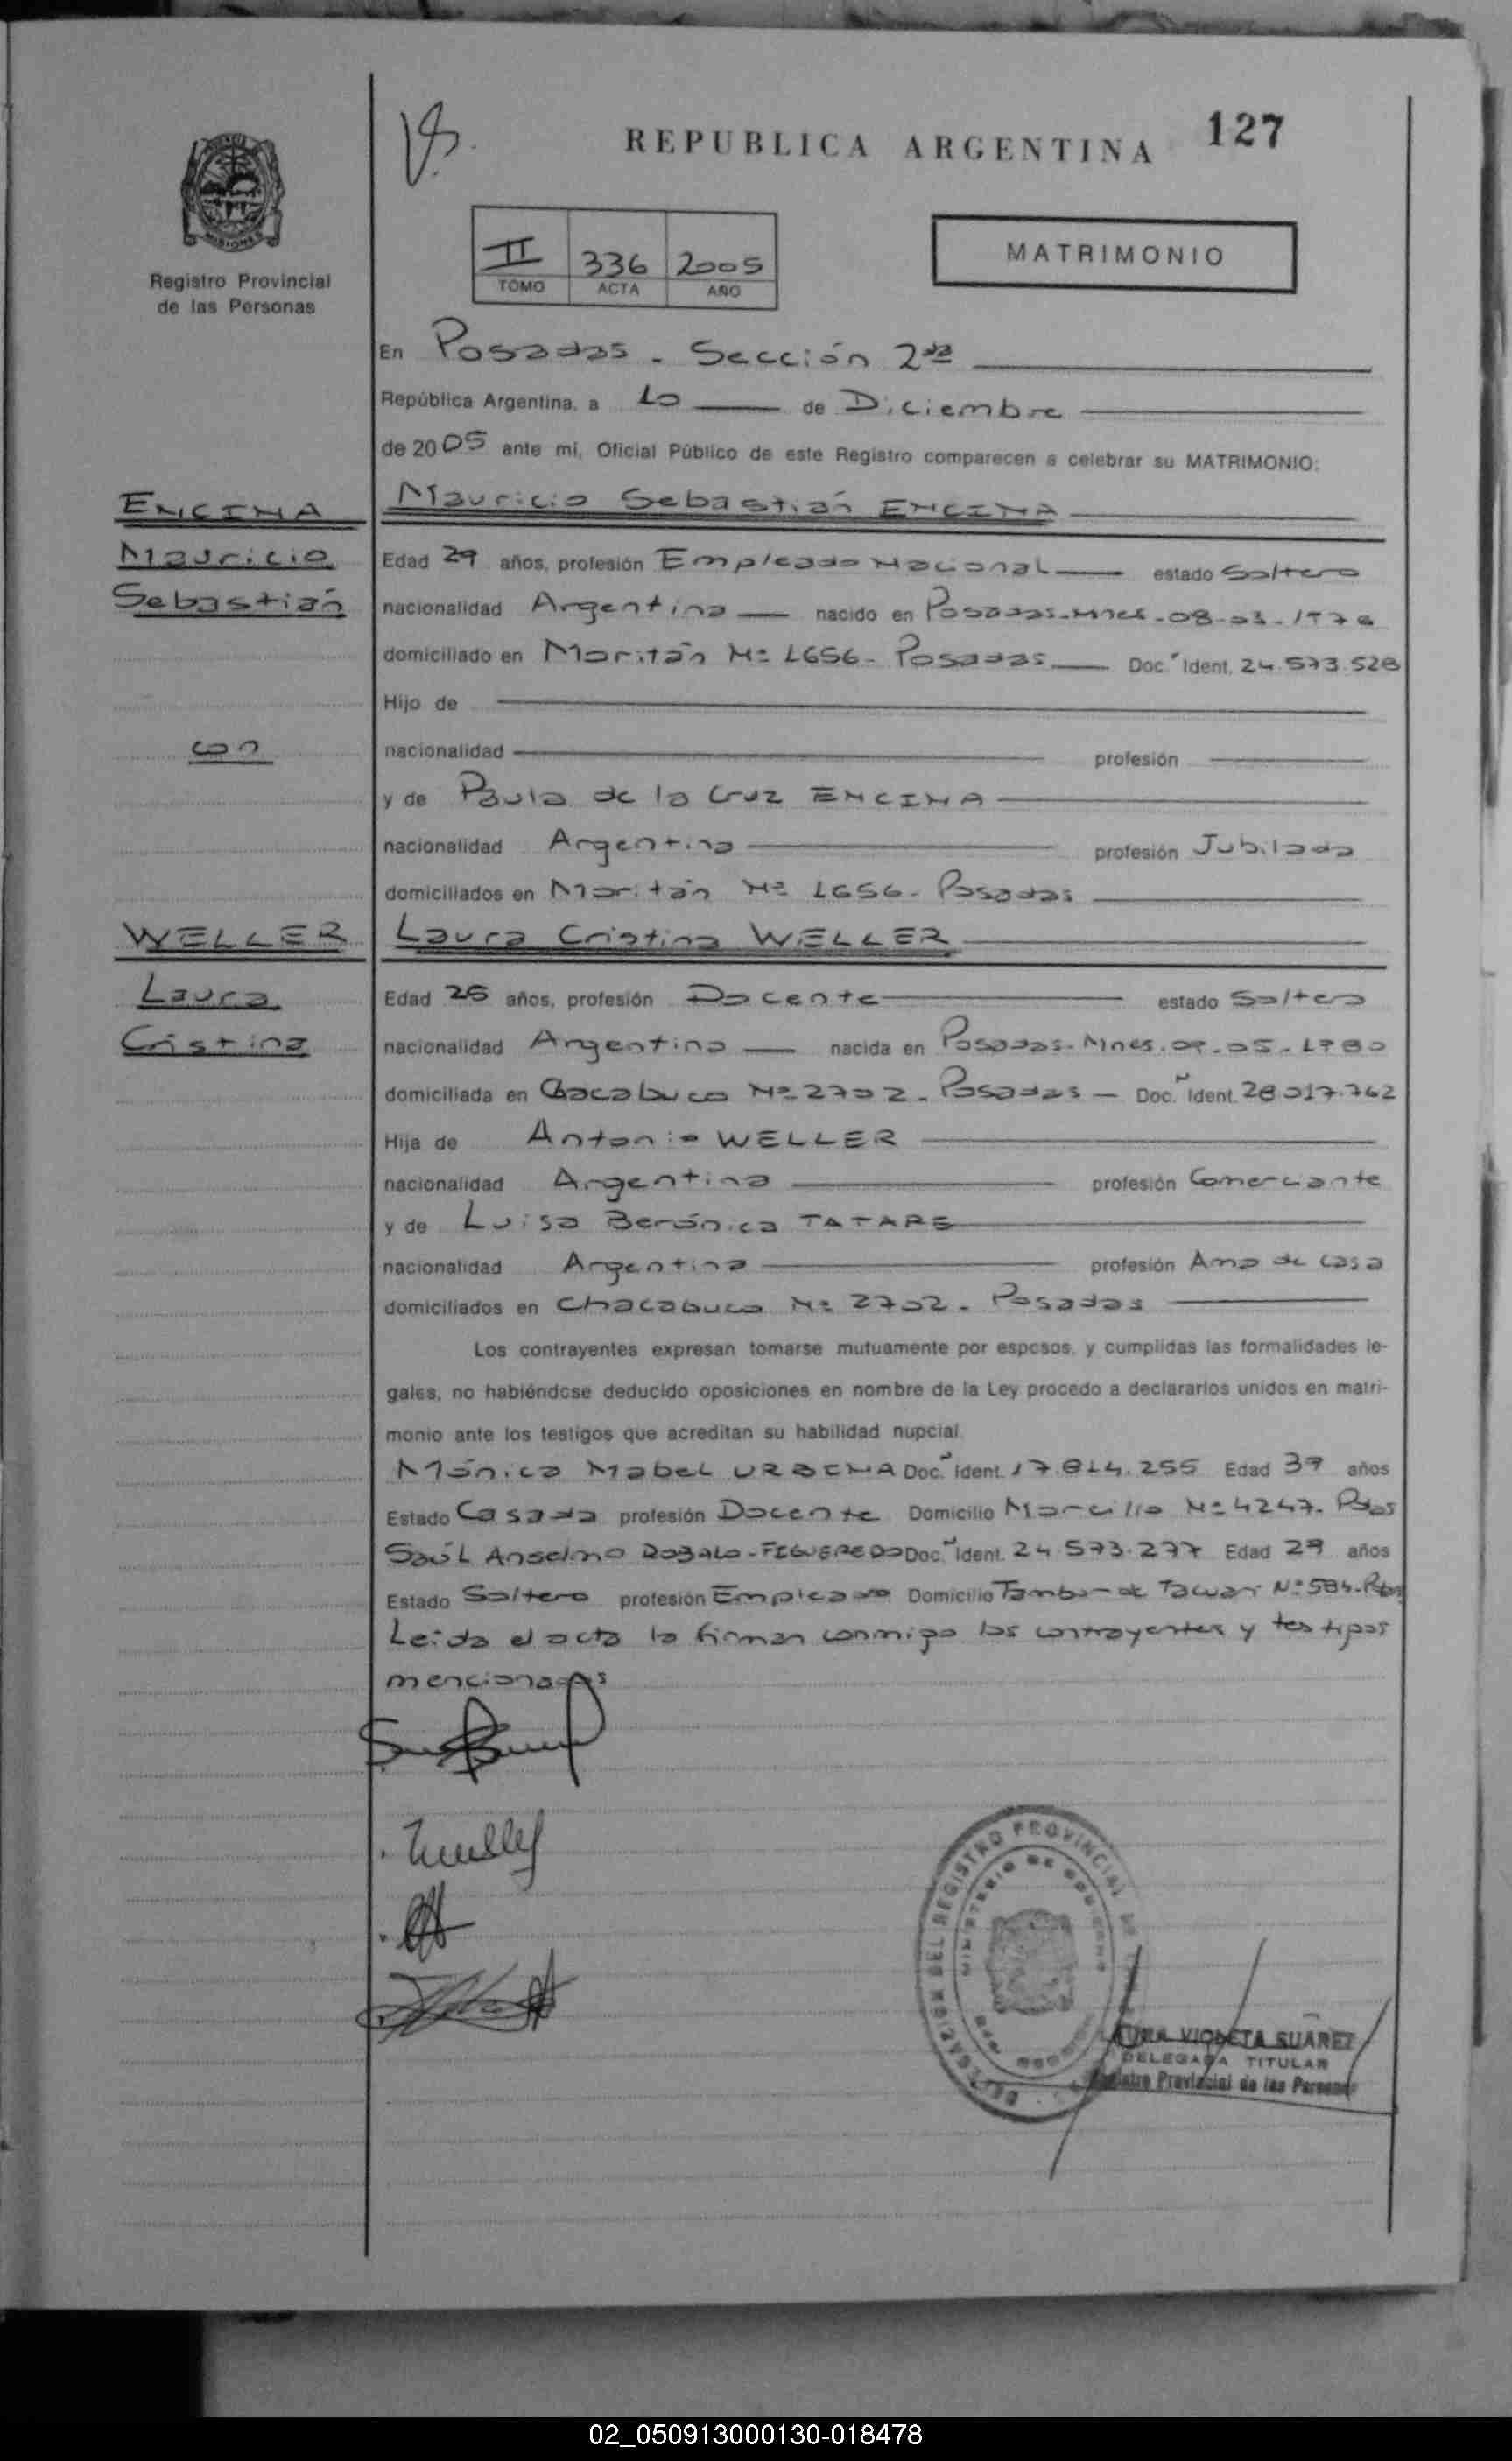 REPUBLICA ARGENTINA 127
MISIONES
Registro Provincial
de las Personas
II 336 2005
TOMO ACTA AÑO
MATRIMONIO
En Posadas - Sección 2da
República Argentina, a 10 de Diciembre
de 2005 ante mi, Oficial Público de este Registro comparecen a celebrar su MATRIMONIO:
ENCINA
Mauricio
Sebastián
con
WELLER
Laura
Cristina
Mauricio Sebastián ENCINA
Edad 29 años, profesión Empleado Nacional estado Soltero
nacionalidad Argentina nacido en Posadas-Mnes-08-03-1976
domiciliado en Moritán Nº 1656- Posadas Doc. Ident. 24.573.528
Hijo de
nacionalidad profesión
y de Paula de la Cruz ENCINA
nacionalidad Argentina profesión Jubilada
domiciliados en Moritán Nº 1656- Posadas
Laura Cristina WELLER
Edad 25 años, profesión Docente estado Soltera
nacionalidad Argentina nacida en Posadas-Mnes.09-05-1980
domiciliada en Chacabuco Nº 2702- Posadas Doc. Ident. 28.017.762
Hija de Antonio WELLER
nacionalidad Argentina profesión Comerciante
y de Luisa Berónica TATARE
nacionalidad Argentina profesión Ama de casa
domiciliados en Chacabuco Nº 2702- Posadas
Los contrayentes expresan tomarse mutuamente por esposos, y cumplidas las formalidades le-
gales, no habiéndose deducido oposiciones en nombre de la Ley procedo a declararlos unidos en matri-
monio ante los testigos que acreditan su habilidad nupcial.
Mónica Mabel URBINA Doc. Ident. 17.814.255 Edad 39 años
Estado Casada profesión Docente Domicilio Marcilio Nº 4247- Pdas
Saúl Anselmo ROBALO-FIGUEREDO Doc. Ident. 24.573.277 Edad 29 años
Estado Soltero profesión Empleado Domicilio Tambor de Tacuarí Nº 584-Pdas
Leída el acta la firman conmigo los contrayentes y testigos
mencionados
DELEGACION DEL REGISTRO PROVINCIAL DE
MINISTERIO DE GOBIERNO
LAURA VIOLETA SUAREZ
DELEGADA TITULAR
Registro Provincial de las Personas
02_050913000130-018478